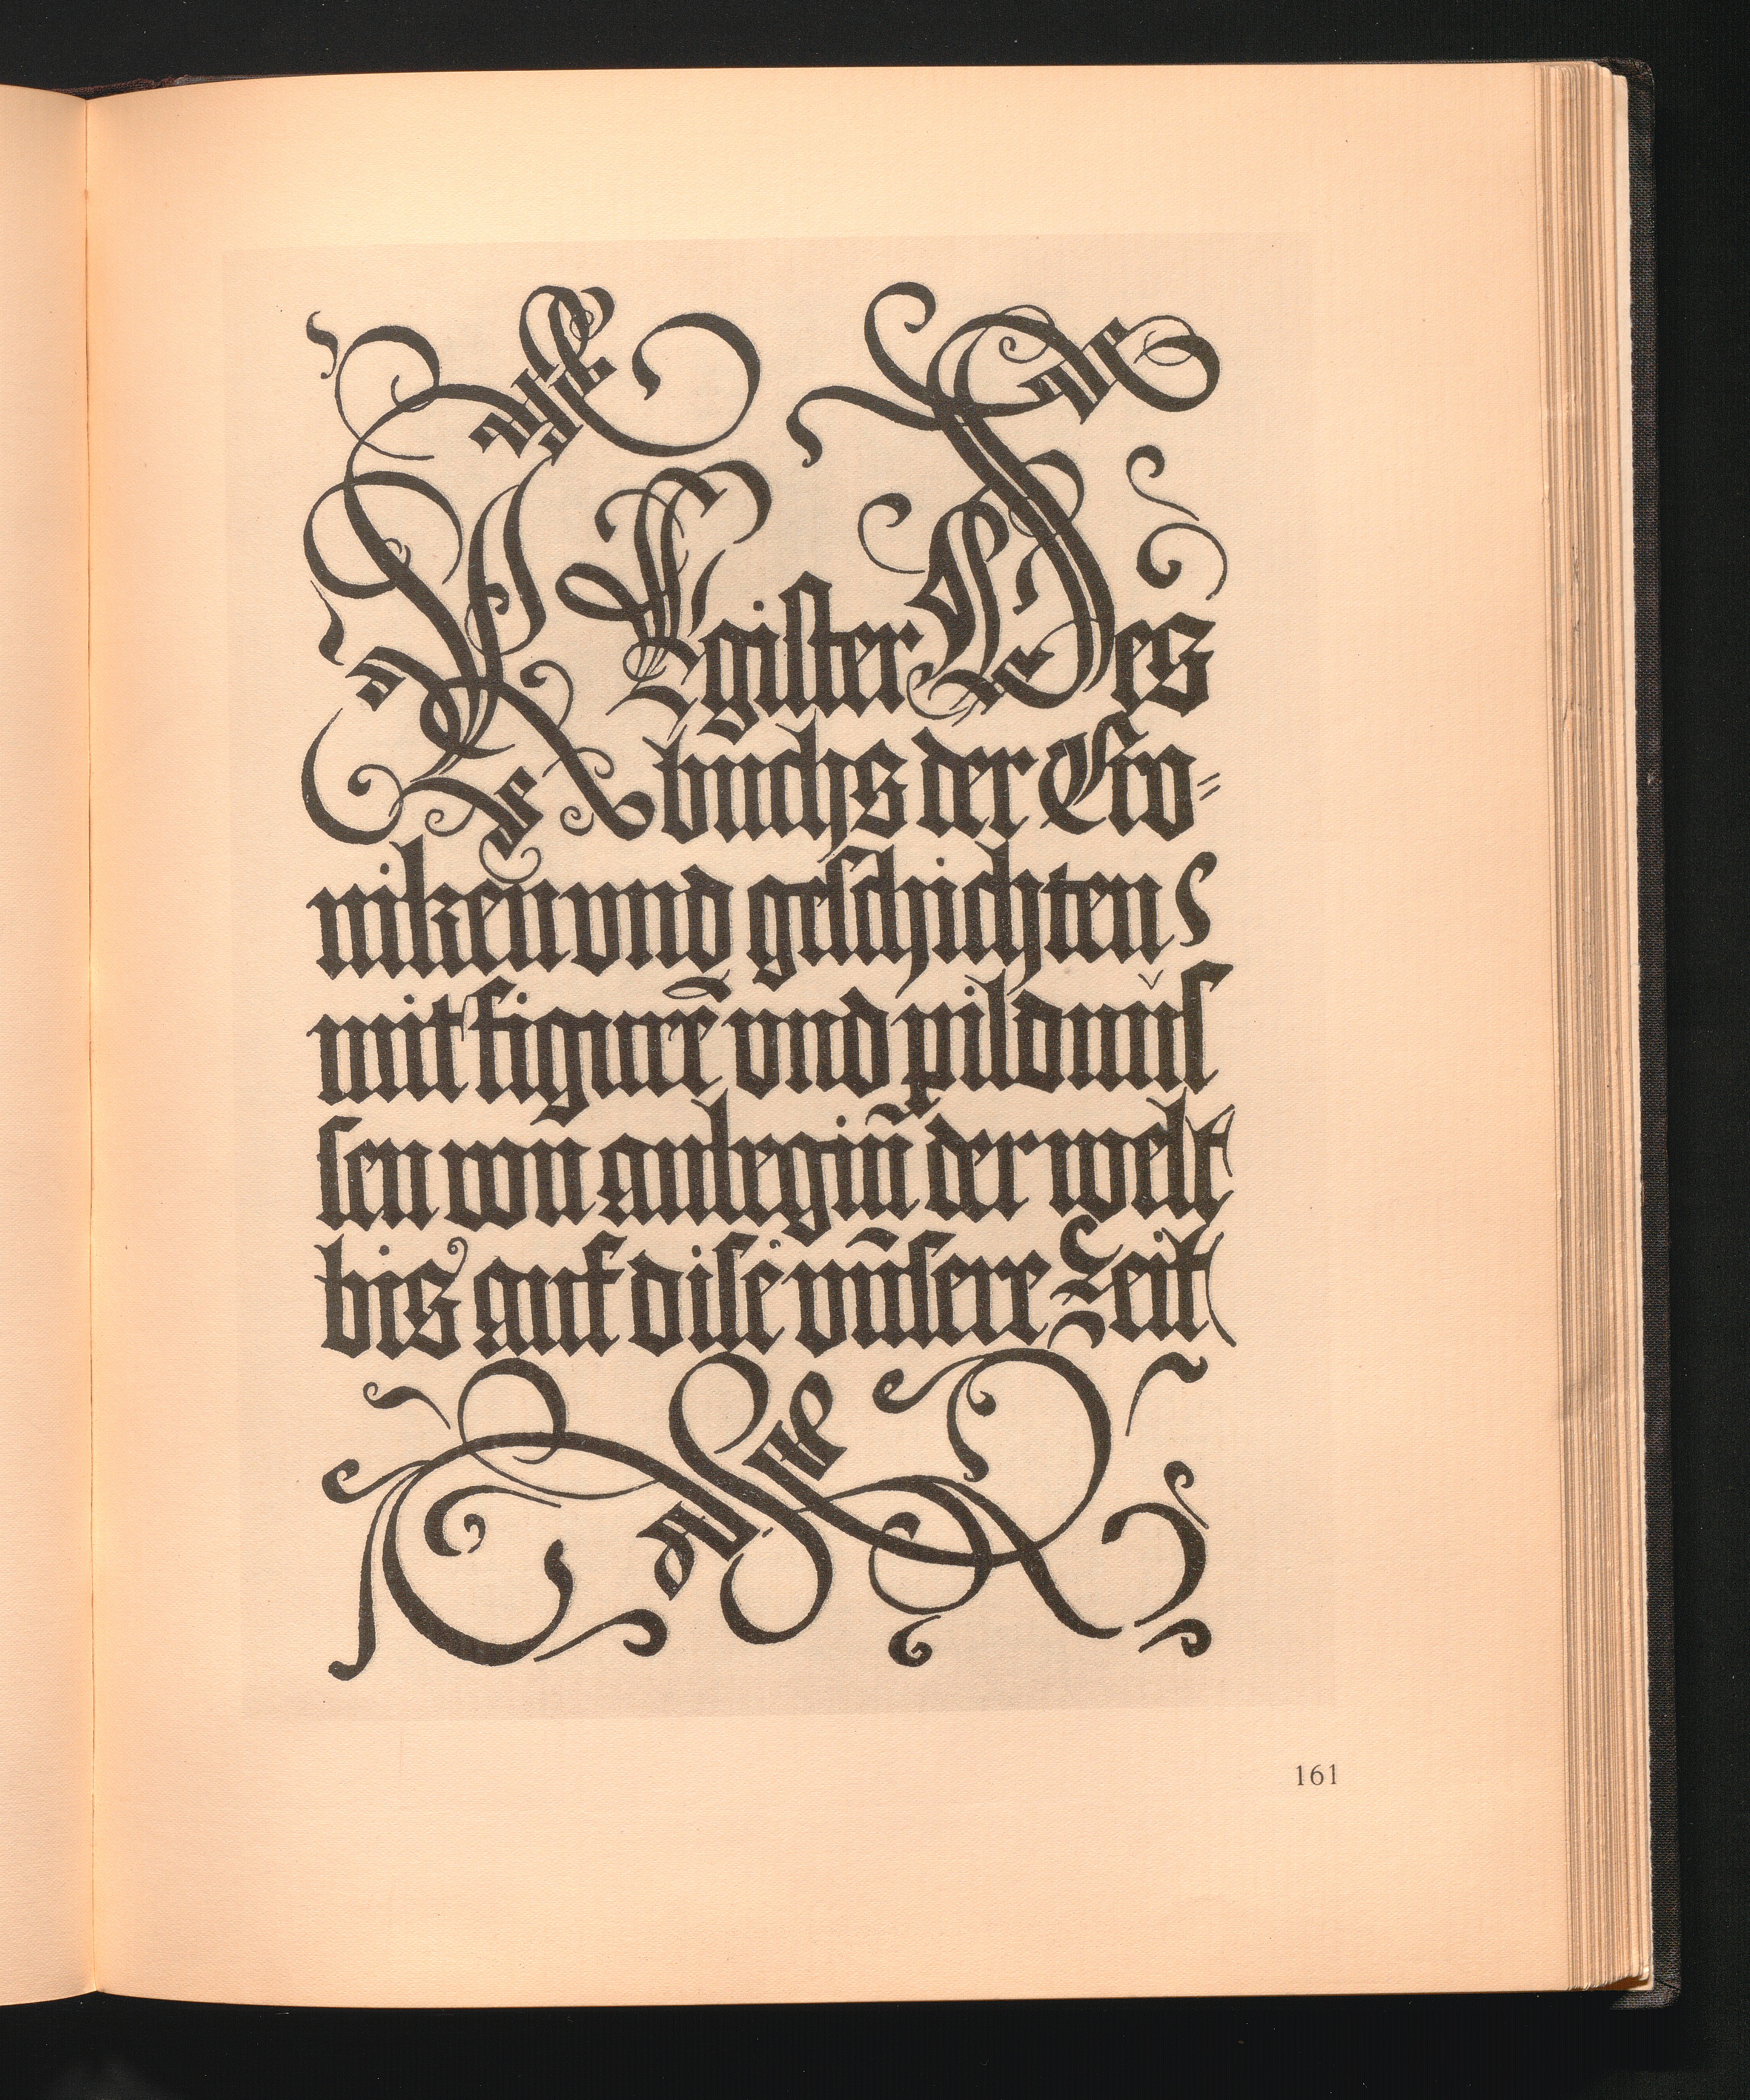 REgister Des
buchs der Cro-
niken vnd geschichten
mit figurẽ vnd pildnüs
sen von anbegiñ der welt
bis auf dise vñsere Zeit
161